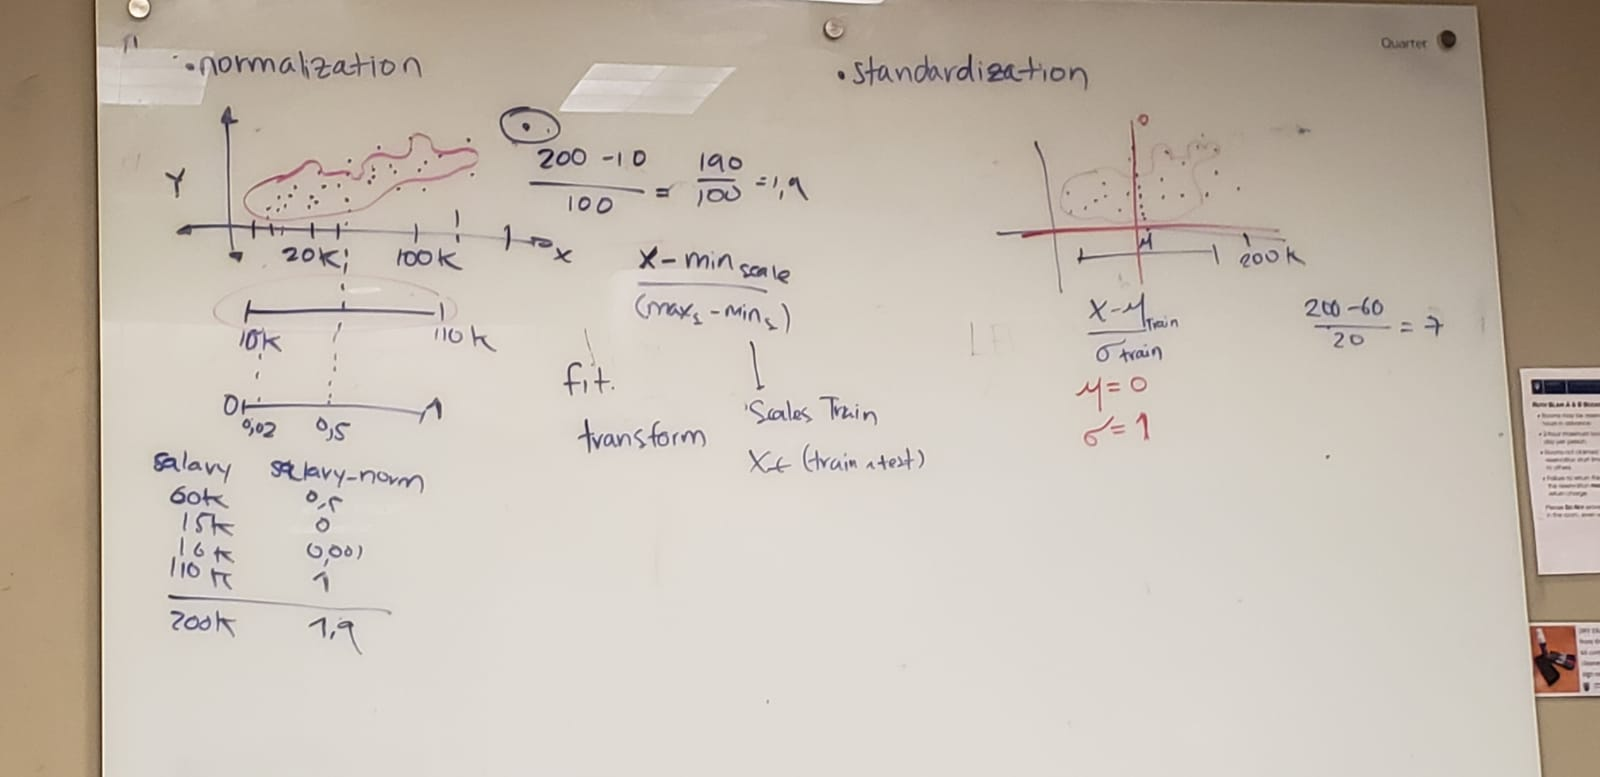 • normalization
Y
20K
100K
x
10K
110K
0
1
0,02
0,5
salary salary-norm
60K 0,5
15K 0
16K 0,001
110K 1
200K 1,9
200 - 10
100
=
190
100
= 1,9
x - min scale
(max s - min s)
fit.
transform
Scales Train
X ← (train ∧ test)
• standardization
0
μ
200K
x - μ Train
σ train
μ = 0
σ = 1
200 - 60
20
= 7
Quarter